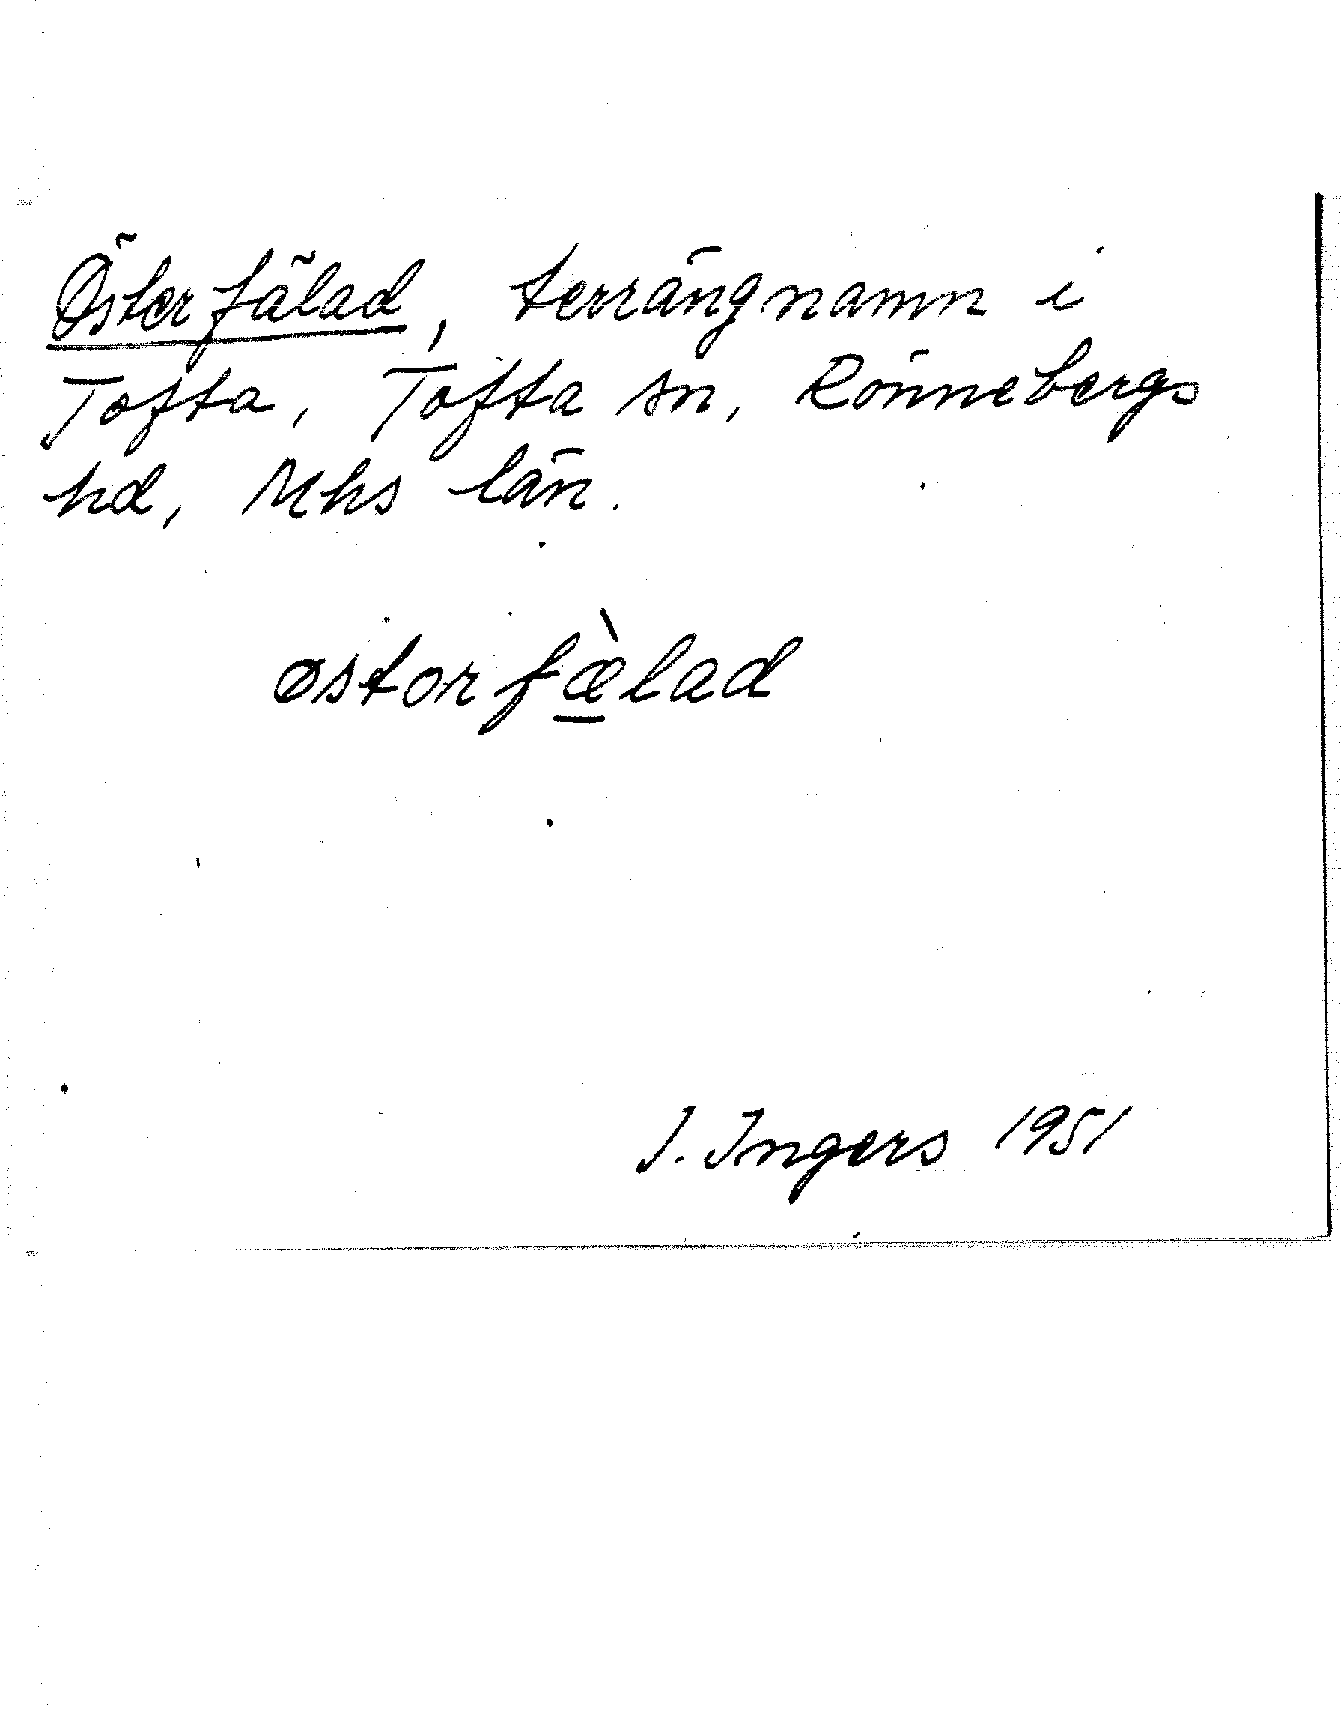 Österfälad, terrängnamn i
Tofta, Tofta sn, Rönnebergs
hd, Mhs län.
østorfæ̠̀lad
I. Ingers 1951